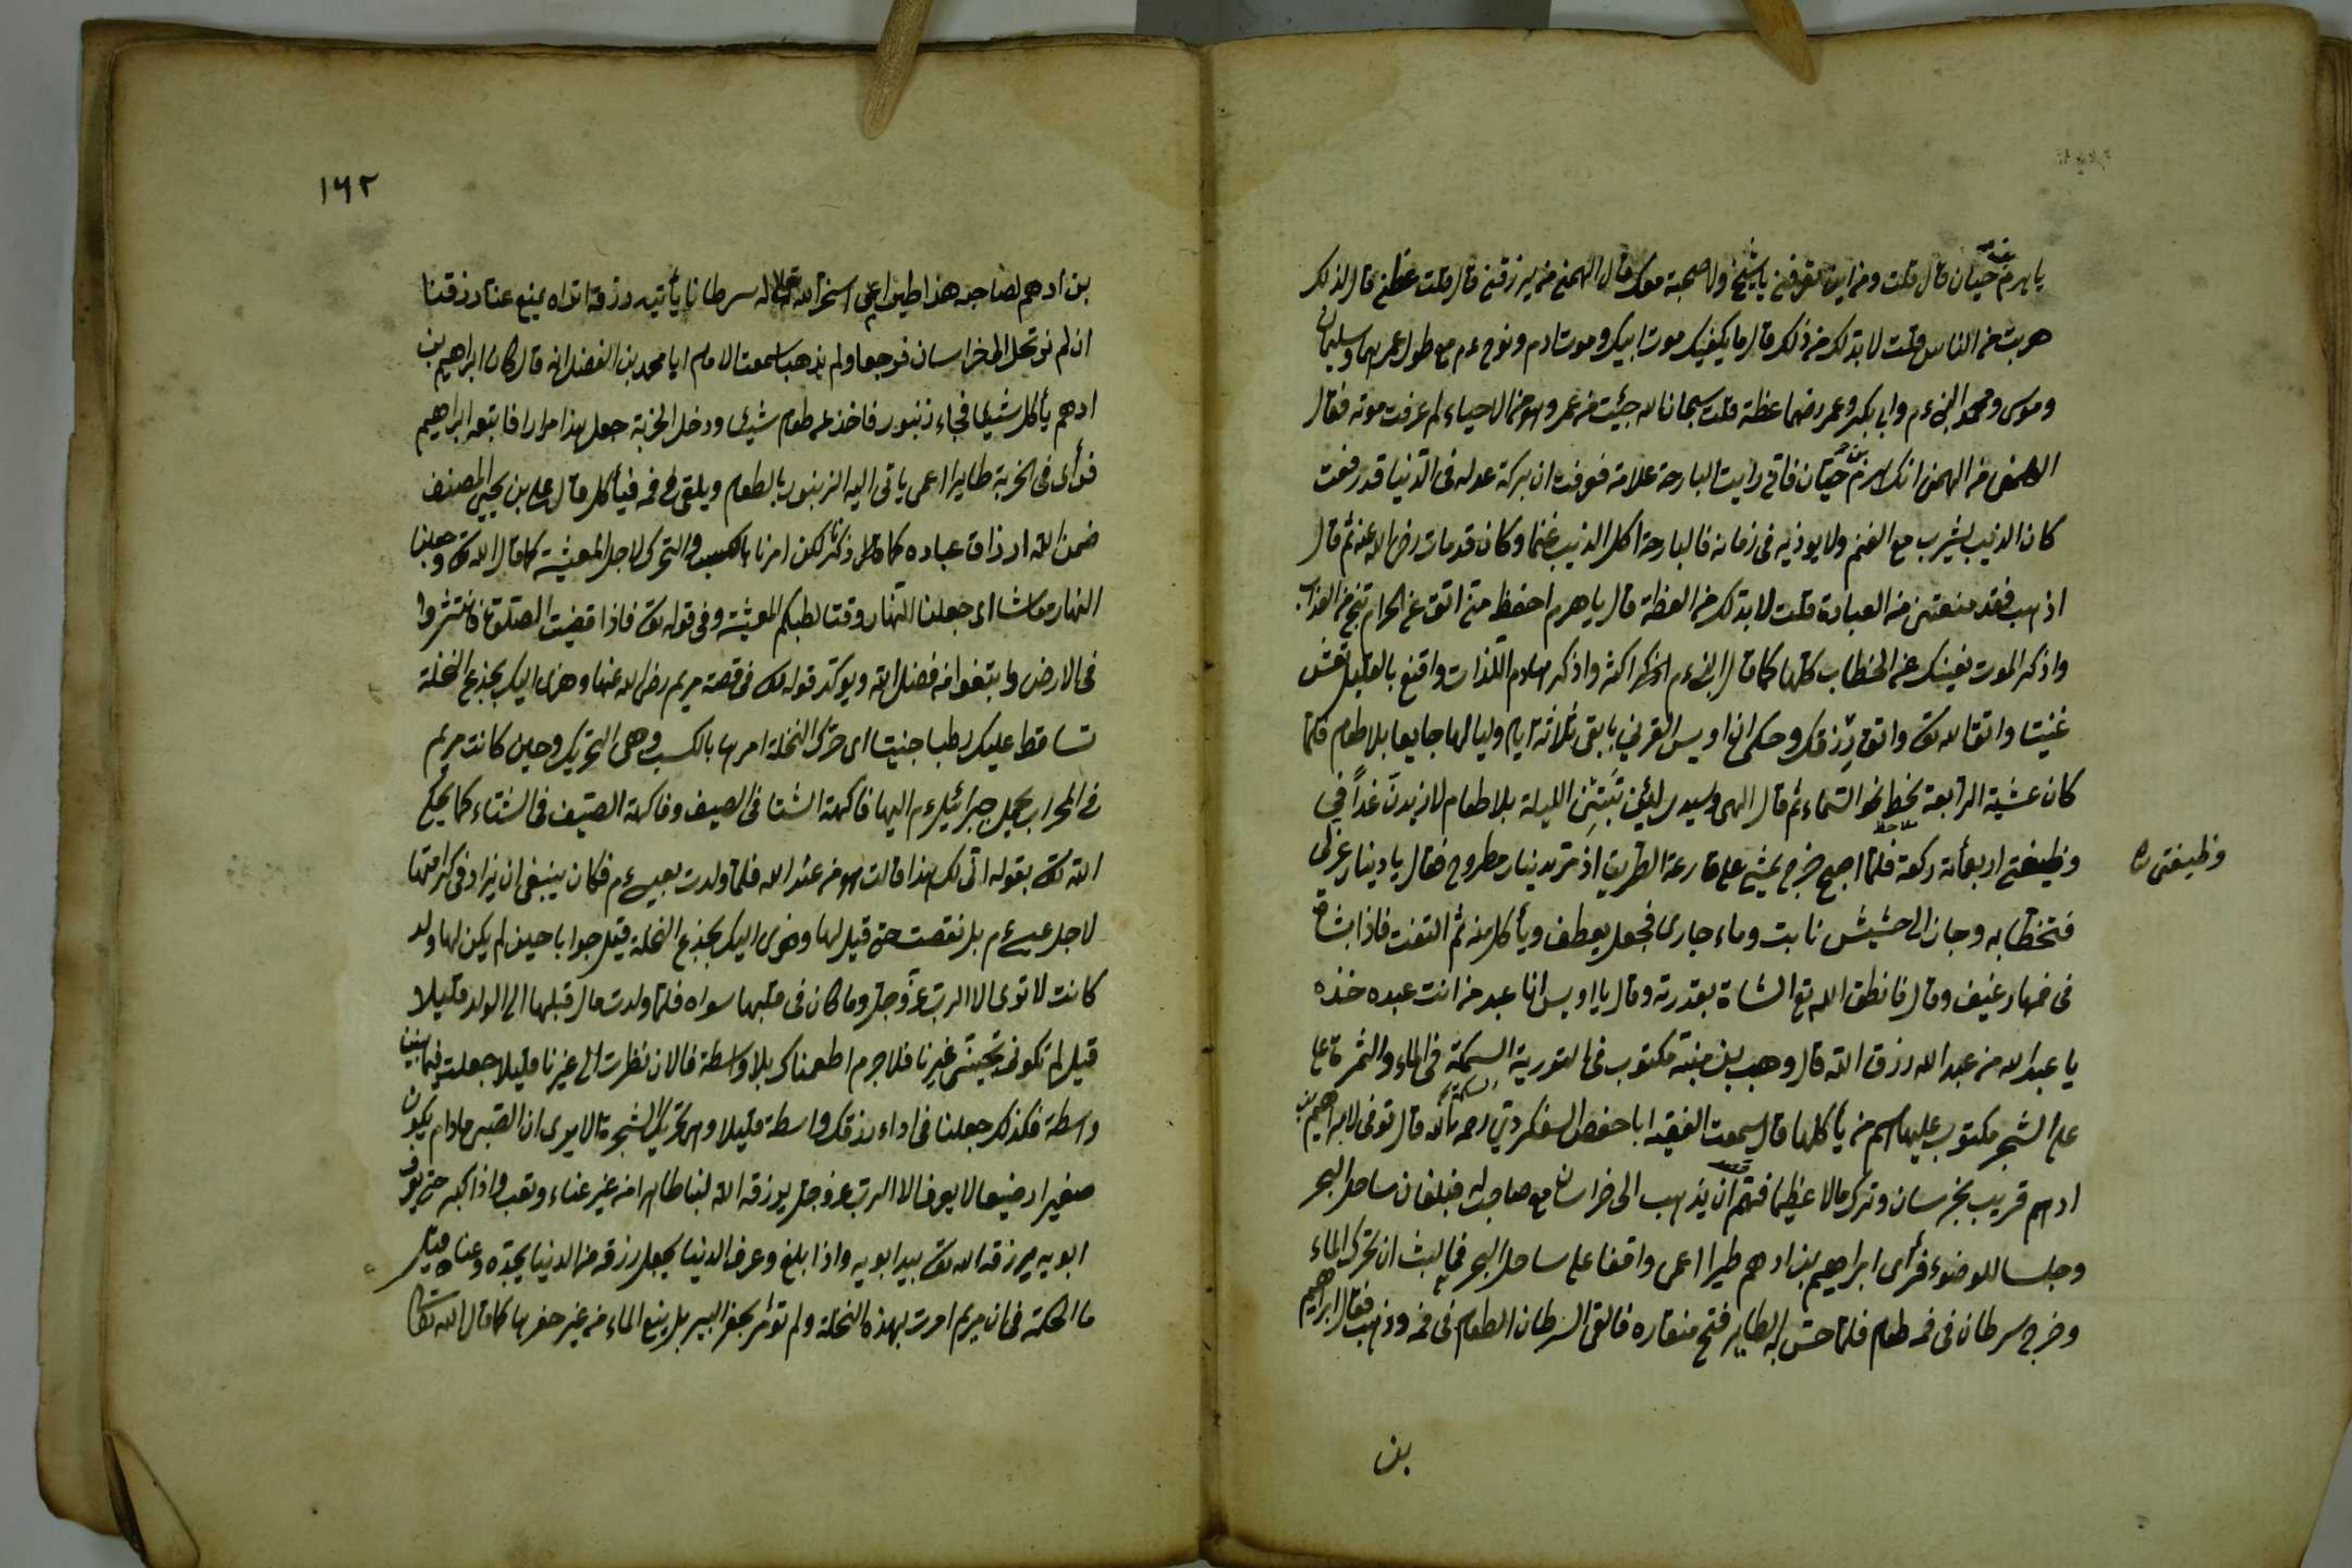 يا هرم بن حيان قال قلت ومن اين تعرفني يا شيخ ولا صحبة معك قال الهمني من يرزقني قال قلت عظني قال لذلك
هربت من الناس قلت لا بد لك من ذلك قال ما يكفيك موت ابيك وموت ادم ونوح ءم مع طول عمرهما وسليمان
وموسى ومحمد النبي ءم وابي بكر وعمر رضهما عظة قلت سبحان الله جئت من عمر وهو من الاحياء لم عرفت موته فقال
الهمني من الهمني انك هرم بن حيان فاني رايت البارحة علامة فعرفته ان بركة عدله في الدنيا قد رفعت
كان الذئب يشرب مع الغنم ولا يوذيه في زمانه فالبارحة اكل الذئب غنما وكان قد مات رضى الله عنه ثم قال
اذهب فقد منعتني من العبادة قلت لا بد لك من العظة قال يا هرم احفظ مني اتق عن الحرام تنج من العذاب
واذكر الموت يغنيك عن الخطاب كلها كما قال النبي ءم اكثر واذكر هادم اللذات واقنع بالقليل تعش
غنيا واتق الله تع واثق برزقك وحكى ان اويس القرني بابقى ثلاثة ايام ولياليها جايعا بلا طعام فلما
كان عشية الرابعة نحو السماء ثم قال الهي وسيدي لئن تبيتني الليلة بلا طعام لازيدن غدا في
وظيفتي اربعمأئة ركعة فلما اصبح خرج يمشي على قارعة الطريق اذ مر بدينار مطروح فقال يا دينار غري
وظيفتي ره
فتخطا به وجاز الى حشيش نابت وماء جارى فجعل يعطف ويأكل منه ثم التفت فاذا بشاة
في فمها رغيف وقال فانطق الله تع الشاة بقدرته وقال يا اويس انا عبد من انت عبده خذه
يا عبد الله من عبد الله رزق الله قال وهب بن منبه مكتوب في التورية السمكة في الماء والثمرة على
على الشجر مكتوب عليها اسم من يأكلها قال سمعت الفقيه ابا حفص السفكردي رحمه الله قال توفى لابراهيم بن
ادهم قريب بخرسان وترك مالا عظيما فهم ان يذهب الى خراسان مع صاحب له فبلغان ساحل البحر
وجلسا للوضوء فرأى ابراهيم بن ادهم طيرا اعمى واقفا على ساحل البحر فما لبث ان تحرك الماء
وخرج سرطان في فمه طعام فلما حس به الطاير فتح منقاره فالقى السرطان الطعام في فمه وذهب فقال ابراهيم
بن
١٦٢
بن ادهم لصاحبه هذا طير اعمى سخر الله تعالى له سرطانا يأتيه رزقه اتراه يمنع عنا رزقنا
ان لم نرتحل الى خراسان فرجعا ولم يذهبا سمعت الامام ابا محمد بن الفضل انه قال كان ابراهيم بن
ادهم يأكل شيئا فجاء زنبور فاخذ من طعام شيئا ودخل الخربة جعل هذا مرارا فاتبعه ابراهيم
فرأى في الخربة طايرا اعمى ياتى اليه الزنبور بالطعام ويلقى في فمه فيأكل قال على بن يحيى المصنف
ضمن الله ارزاق عباده كما ذكرنا لكن امرنا بالكسب والتحرك لاجل المعيشة كما قال الله تع وجعلنا
النهار معاشا اى جعلنا النهار وقتا لطلبكم المعيشة وفي قوله تع فاذا قضيت الصلوة فانتشروا
في الارض وابتغوا من فضل الله ويوكد قوله تع في قصة مريم رضى الله عنها وهزى اليك بجذع النخلة
تساقط عليك رطبا جنيا اى حرك النخلة امرها بالكسب وهي التحريك وحين كانت مريم
في المحراب يحمل جبرائيل ءم اليها فاكهة الشتا في الصيف وفاكهة الصيف في الشتاء كما يحكى
الله تع بقوله انى لك هذا قالت هو من عند الله فلما ولدت بعيسى ءم فكان ينبغى ان يزاد في كرامتها
لاجل عيسى ءم بل نقصت حتى قيل لها وهزى اليك بجذع النخلة قيل جوابا حين لم يكن لها ولد
كانت لا ترى الا الرب عز وجل وما كان في قلبها سواه فلما ولدت مال قبلها الى الولد قليلا
قيل لم تكونى تحبين غيرنا فلا جرم اطعمناك بلا واسطة فالان نظرت الى غيرنا قليلا جعلت فيما بيننا
واسطة فكذلك جعلنا في اداء رزقك واسطة قليلا وهى تحريك الشجرة الا يرى ان الصبى ما دام يكون
صغيرا رضيعا لا يعرف الا الرب عز وجل يرزقه الله لبنا طاهرا من غير عناء وتعب واذا كبر حتى يعرف
ابويه يرزقه الله تع بيد ابويه واذا بلغ وعرف الدنيا يجعل رزقه من الدنيا بجده وعناه قيل
ما الحكمة في ان مريم امرت بهذه النخلة ولم تؤمر بحفر البير بل ينبع الماء من غير حفرها كما قال الله تعالى